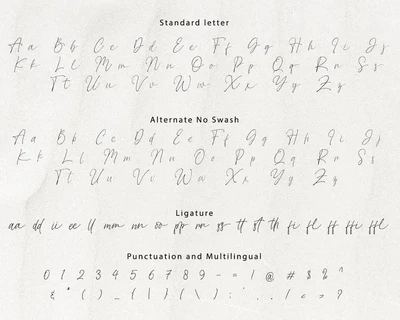 Standard letter
Aa Bb Cc Dd Ee Ff Gg Hh Ii Jj
Kk Ll Mm Nn Oo Pp Qq Rr Ss
Tt Uu Vv Ww Xx Yy Zz
Alternate No Swash
Aa Bb Cc Dd Ee Ff Gg Hh Ii Jj
Kk Ll Mm Nn Oo Pp Qq Rr Ss
Tt Uu Vv Ww Xx Yy Zz
Ligature
aa dd ii ee ll mm nn oo pp rr ss tt st th fi fl ff ffi ffl
Punctuation and Multilingual
0 1 2 3 4 5 6 7 8 9 - = ! @ # $ % ^
& * ( ) _ { | } ( \ ) : . , / < > ?